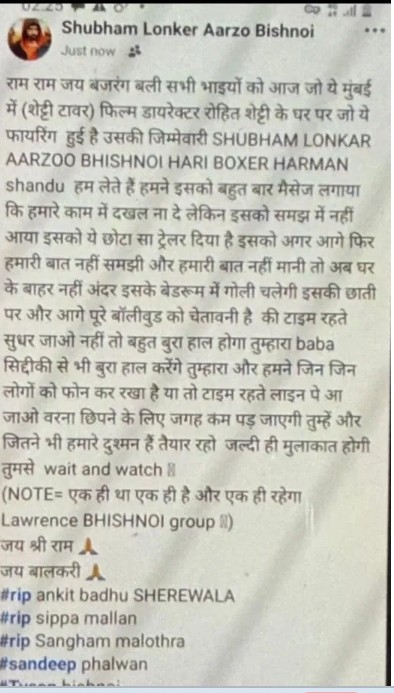 Shubham Lonker Aarzo Bishnoi
Just now
राम राम जय बजरंग बली सभी भाइयों को आज जो ये मुंबई
में (शेट्टी टावर) फिल्म डायरेक्टर रोहित शेट्टी के घर पर जो ये
फायरिंग हुई है उसकी जिम्मेवारी SHUBHAM LONKAR
AARZOO BHISHNOI HARI BOXER HARMAN
shandu हम लेते हैं हमने इसको बहुत बार मैसेज लगाया
कि हमारे काम में दखल ना दे लेकिन इसको समझ में नहीं
आया इसको ये छोटा सा ट्रेलर दिया है इसको अगर आगे फिर
हमारी बात नहीं समझी और हमारी बात नहीं मानी तो अब घर
के बाहर नहीं अंदर इसके बेडरूम में गोली चलेगी इसकी छाती
पर और आगे पूरे बॉलीवुड को चेतावनी है की टाइम रहते
सुधर जाओ नहीं तो बहुत बुरा हाल होगा तुम्हारा baba
सिद्दीकी से भी बुरा हाल करेंगे तुम्हारा और हमने जिन जिन
लोगों को फोन कर रखा है या तो टाइम रहते लाइन पे आ
जाओ वरना छिपने के लिए जगह कम पड़ जाएगी तुम्हें और
जितने भी हमारे दुश्मन हैं तैयार रहो जल्दी ही मुलाकात होगी
तुमसे wait and watch
(NOTE= एक ही था एक ही है और एक ही रहेगा
Lawrence BHISHNOI group )
जय श्री राम 🙏
जय बालकरी 🙏
#rip ankit badhu SHEREWALA
#rip sippa mallan
#rip Sangham malothra
#sandeep phalwan